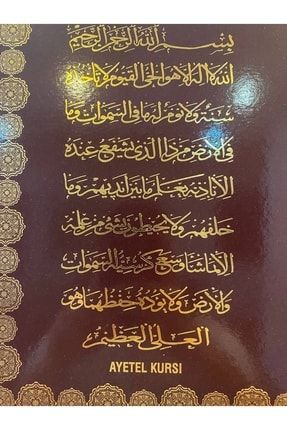 بسم الله الرحمن الرحيم
الله لا اله الا هو الحي القيوم لا تأخذه
سنة ولا نوم له ما في السموات وما
في الارض من ذا الذي يشفع عنده
الا باذنه يعلم ما بين ايديهم وما
خلفهم ولا يحيطون بشئ من علمه
الا بما شاء وسع كرسيه السموات
والارض ولا يؤده حفظهما وهو
العلي العظيم
AYETEL KURSI